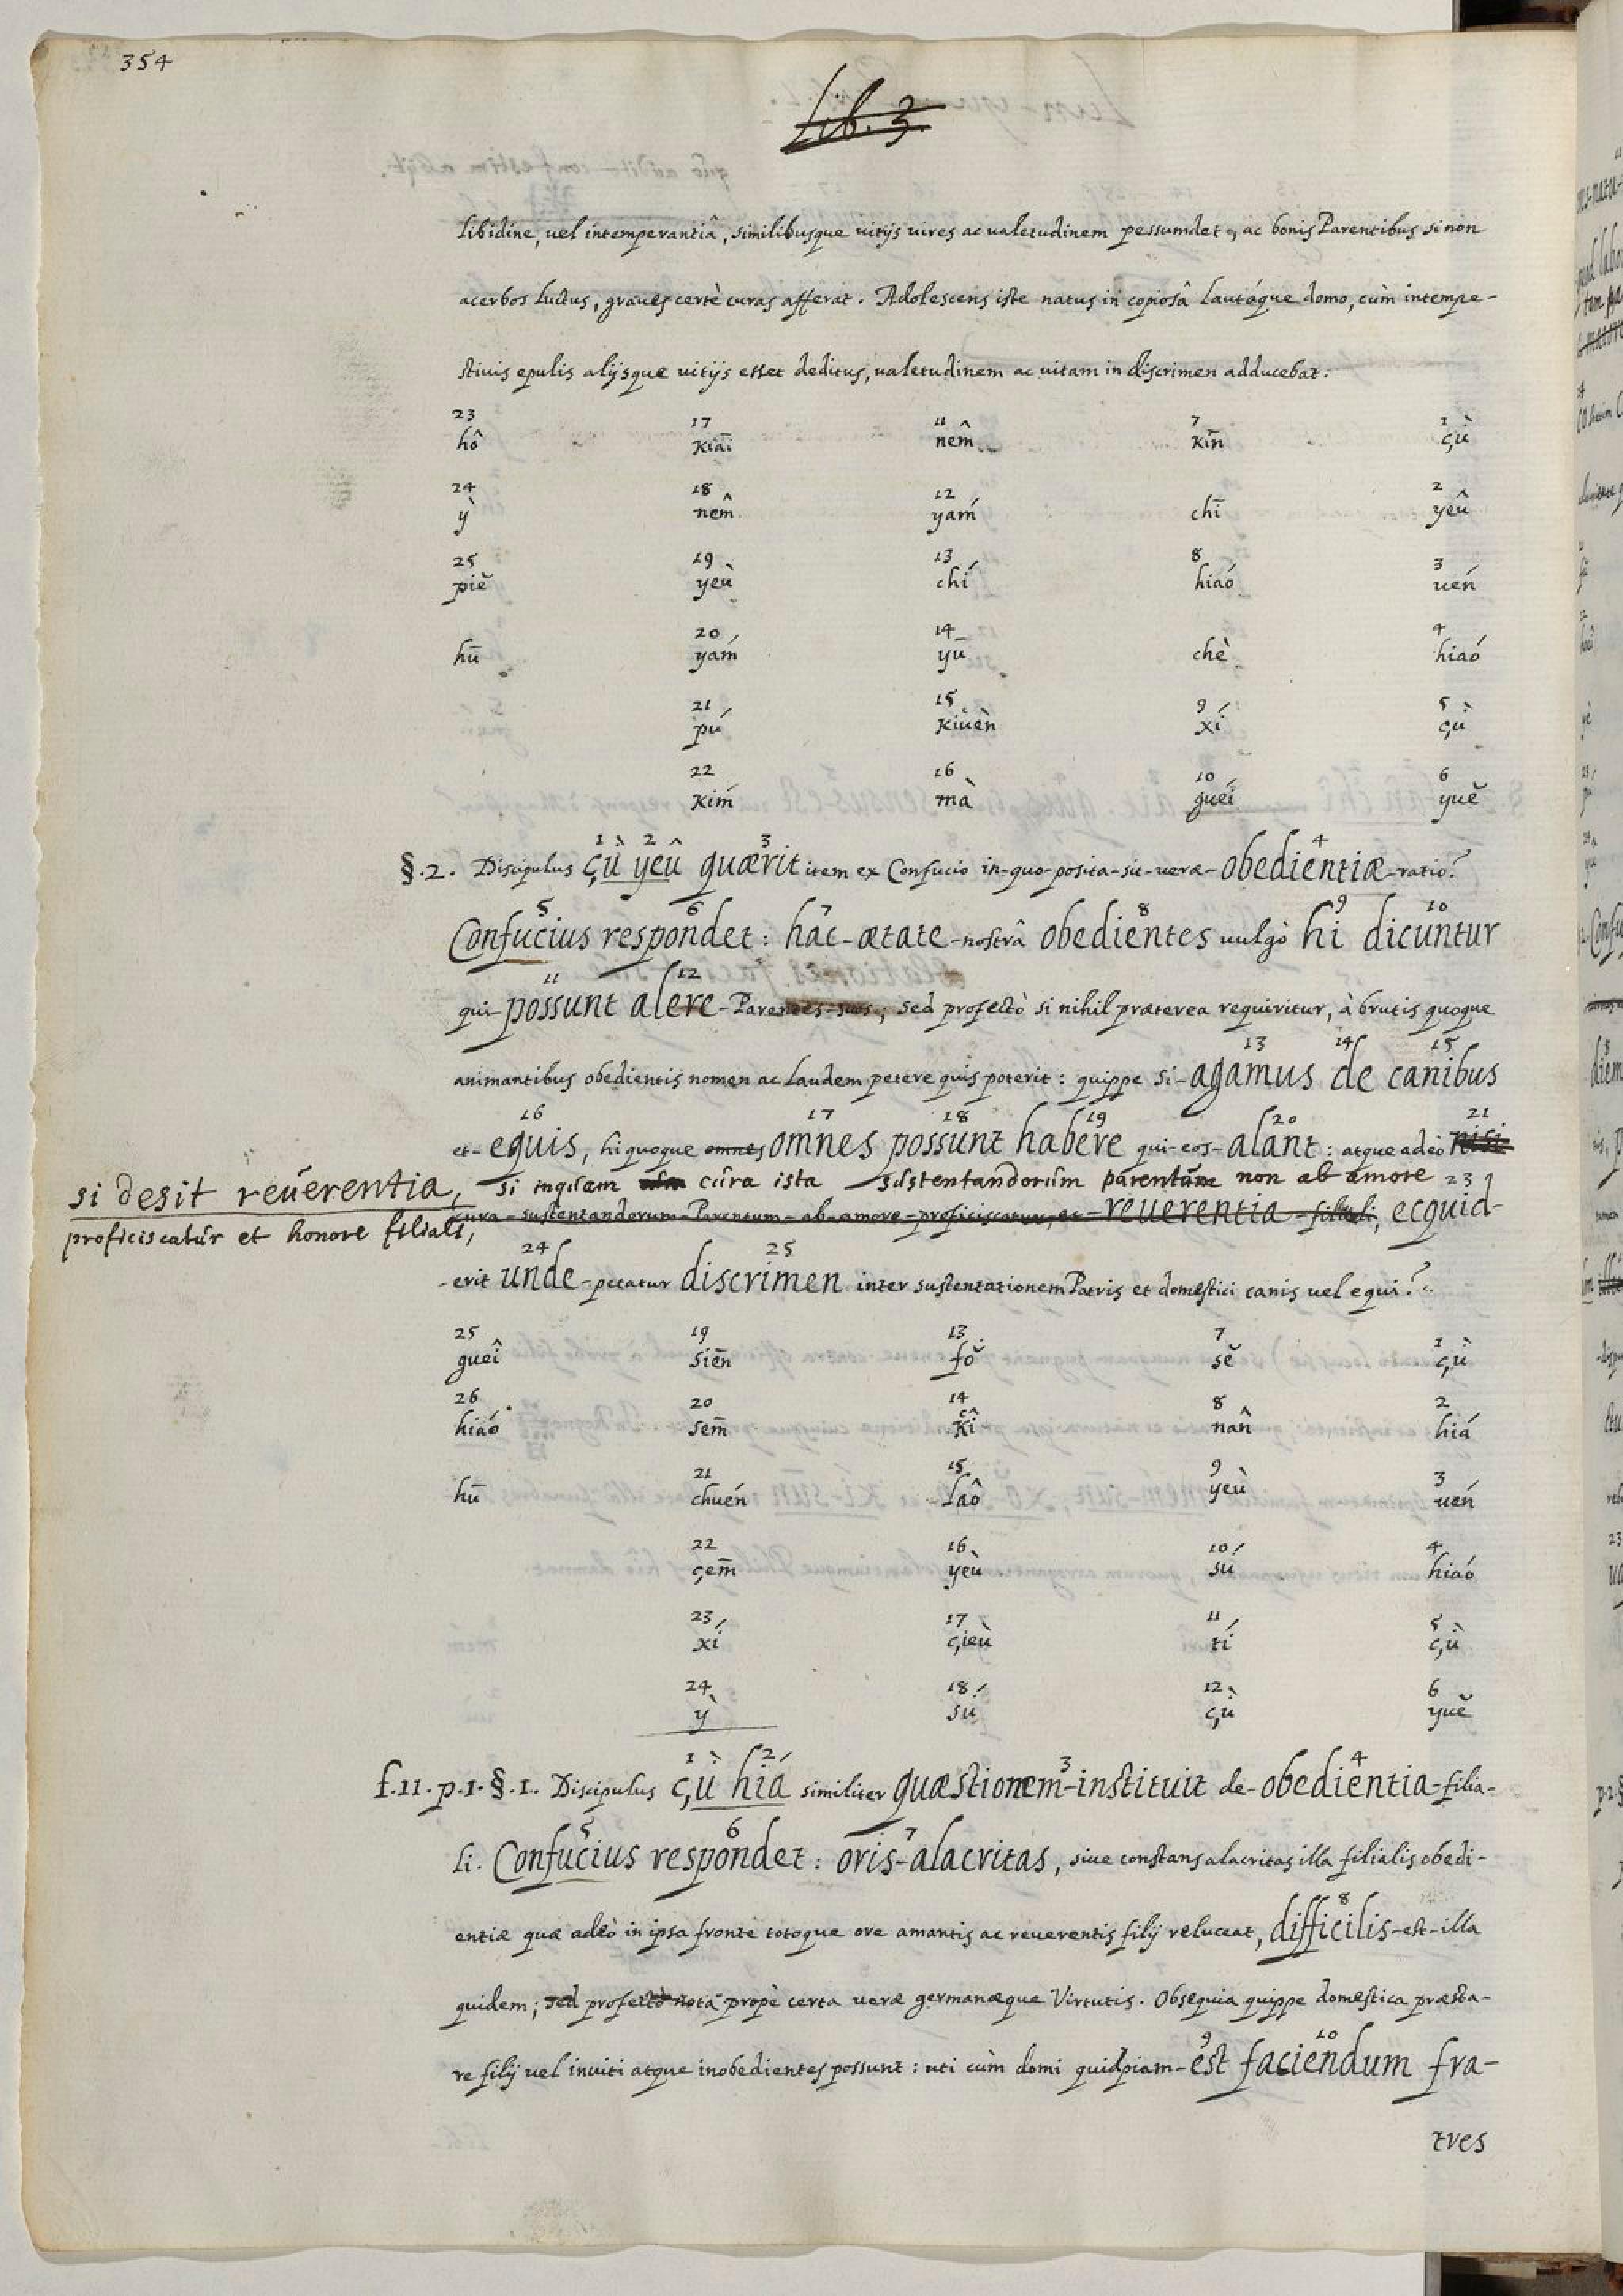 354
Lib. 3.
libidine, uel intemperantiâ, similibusque uitijs uires ac ualetudinem pessumdet, ac bonis Parentibus si non
acerbos luctus, graues certè curas afferat. Adolescens iste natus in copiosâ lautáque domo, cùm intempe-
stiuis epulis alijsque uitijs esset deditus, ualetudinem ac uitam in discrimen adducebat.
23 17 11 7 1
hô kiāi nêm kīn çù
24 18 12 2
ỳ nêm yám chī yêu
25 19 13 8 3
piĕ yeù chí hiaó uén
20 14 4
hū yám yū chè hiaó
21 15 9 5
pú kiuèn xí çù
22 16 10 6
kím mà guéi yuĕ
1 2 3 4
§.2. Discipulus çù yêu quærit item ex Confucio in-quo-posita-sit-uera-obedientiæ-ratio?
5 6 7 8 9 10
Confucius respondet: hâc-ætate-nostrâ obedientes uulgò hi dicuntur
11 12
qui-possunt alere-Parentes-suos; sed profectò si nihil præterea requiritur, à brutis quoque
13 14 15
animantibus obedientis nomen ac laudem petere quis poterit: quippe si-agamus de canibus
16 17 18 19 20 21
et-equis, hi quoque omnes omnes possunt habere qui-eos-alant: atque adeò nisi
si desit reuerentia, si inquam cura ista sustentandorum parentum non ab amore 23
proficiscatur et honore filiali,
cura-sustentandorum-Parentum-ab-amore-proficiscatur, et-reuerentia-filiali, ecquid-
24 25
-erit unde-petatur discrimen inter sustentationem Patris et domestici canis uel equi?
25 19 13 7 1
guêi siēn fŏ sĕ çù
26 20 14 8 2
hiaó sēm kî nân hiá
21 15 9 3
hū chuén laô yeù uén
22 16 10 4
çēm yeù sú hiaó
23 17 11 5
xí çieù tí çù
24 18 12 6
ỳ sú çù yuĕ
1 2 3 4
f.11.p.1.§.1. Discipulus çù hiá similiter quæstionem-instituit de-obedientia-filia-
5 6 7
li. Confucius respondet: oris-alacritas, siue constans alacritas illa filialis obedi-
8
entiæ quæ adeò in ipsa fronte totoque ore amantis ac reuerentis filij reluceat, difficilis-est-illa
quidem; sed profectò nota propè certa ueræ germanæque Virtutis. Obsequia quippe domestica præsta-
9 10
re filij uel inuiti atque inobedientes possunt: uti cùm domi quidpiam-est faciendum fra-
tres